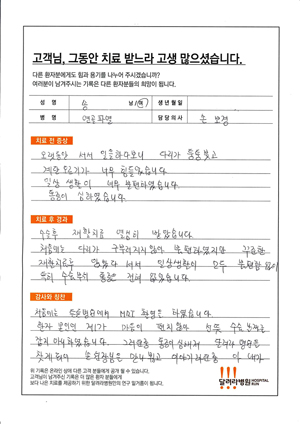 고객님, 그동안 치료 받느라 고생 많으셨습니다.
다른 환자분에게도 힘과 용기를 나누어 주시겠습니까?
여러분이 남겨주시는 기록은 다른 환자분들의 희망이 됩니다.
성 명 송 남/여 생년월일
병 명 연골파열 담당의사 손보경
치료 전 증상
오랫동안 서서 일을하다보니 다리가 퉁퉁붓고
계단 오르기가 너무 힘들었습니다
일상 생활이 너무 불편하였습니다
통증이 심하였습니다
치료 후 경과
수술후 재활치료 열심히 받았습니다
처음에는 다리가 구부러지지않아 불편하였지만 꾸준한
재활치료로 일상생활이 모두 불편함 없이
특히 수술부위 통증은 전혀 없었습니다
감사와 칭찬
처음에는 MRI 촬영을 하였습니다
환자 본인인 제가 마음이 편치않아 선뜻 수술 날짜를
잡지 못하였습니다 그러던중
찾게되어 손원장님은 만나뵙고 이야기하던중 아 내가
위 기록은 온라인 상에 다른 고객 분들에게 공개 될 수 있습니다.
고객님이 남겨주신 기록은 더 많은 환자 분들에게
보다 나은 치료를 제공하기 위한 달려라병원의 연구 밑거름이 됩니다.
달려라병원 HOSPITAL RUN